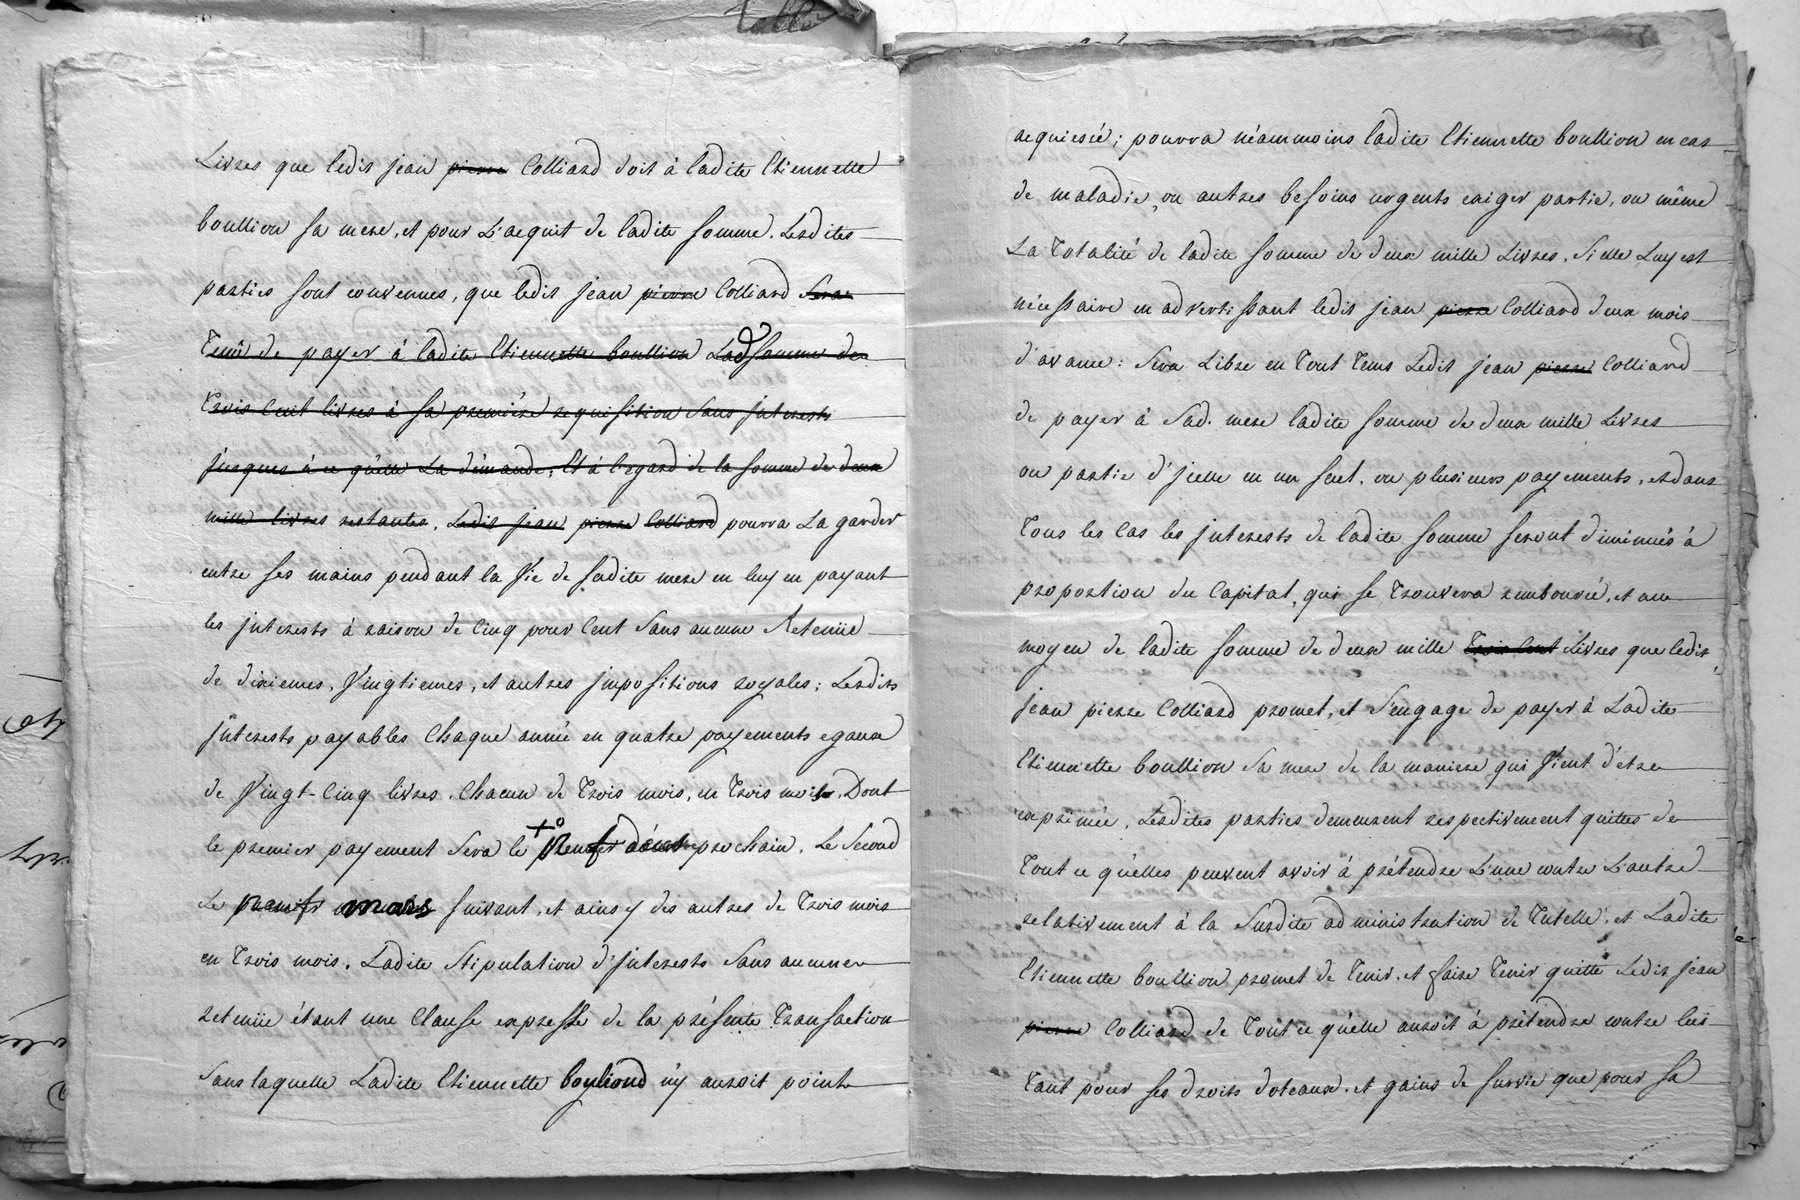 Livres que ledit jean pierre Colliard doit à ladite Etiennette
boullion sa mere, et pour L'acquit de ladite somme. Lesdites
parties sont convenues, que ledit jean pierre Colliard sera
Tenu de payer à ladite Etiennette boullion Lad somme de
Trois Cent livres à sa première requisition sans interests
jusques à ce qu'elle La démande; Et à l'egard de la somme de deux
mille livres restantes. Ledit jean pierre Colliard pourra La garder
entre ses mains pendant la Vie de sadite mere en luy en payant
les jnterests à raison de Cinq pour Cent sans aucune Retenüe
de dixiemes, Vingtiemes, et autres jmpositions royales; Lesdits
jnterests payables Chaque année en quatre payements egaux
de Vingt-Cinq livres. Chacun de Trois mois, en Trois mois. Dont
le premier payement sera le prochain. Le Second
Le mars suivant, et ainsy des autres de Trois mois
en Trois mois. Ladite stipulation d'jnterests sans aucune
retenüe étant une Clause expresse de la présente Transaction
sans laquelle Ladite Etiennette bouliond n'y auroit point
acquiesié; pourra néammoins ladite Etiennette boullion en cas
de maladie, ou autres besoins urgents exiger partie, ou même
La Totalité de ladite somme de deux mille Livres, si elle Luy est
nécessaire en advertissant ledit jean pierre Colliard deux mois
d'avance: sera Libre en Tout Tems Ledit jean pierre Colliard
de payer à sad. mere ladite somme de deux mille Livres
ou partie d'jcelle en un seul, ou plusieurs payements, et dans
Tous les Cas les jnterests de ladite somme seront diminués à
proportion du Capital, qui se Trouvera rembourcé, et au
moyen de ladite somme de deux mille Trois Cent Livres que ledit
jean pierre Colliard promet, et s'engage de payer à Ladite
Etiennette boullion sa mere de la maniere qui Vient d'etre
exprimée, Lesdites parties demeurent respectivement quittes de
Tout ce qu'elles peuvent avoir à prétendre L'une contre L'autre
relativement à la susdite administration de Tutelle, et Ladite
Etiennette boullion promet de Tenir, et faire Tenir quitte Ledit jean
pierre Colliard de Tout ce qu'elle auroit à prétendre contre lui
Tant pour ses droits doteaux, et gains de survie que pour sa